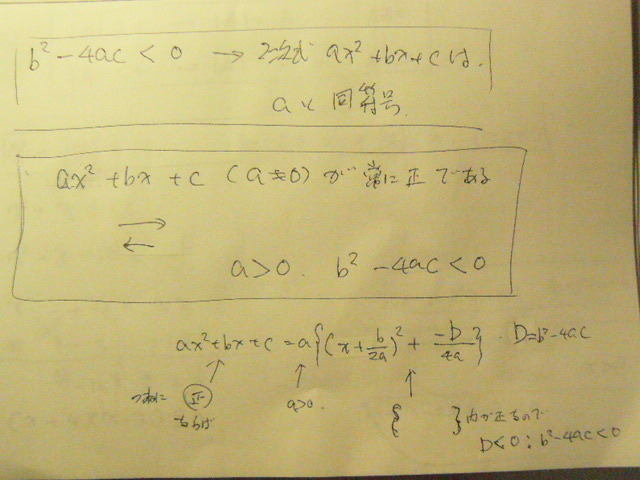 b² - 4ac < 0 → 2次式 ax² + bx + c は、
aと同符号.
ax² + bx + c (a≠0) が常に正である
⇄
a>0. b² - 4ac < 0
ax² + bx + c = a{(x + b/2a)² + -D/4a}. D = b² - 4ac
↑ ↑ ↑
つねに 正 a>0. { }内が正なので
ならば D<0 : b² - 4ac < 0